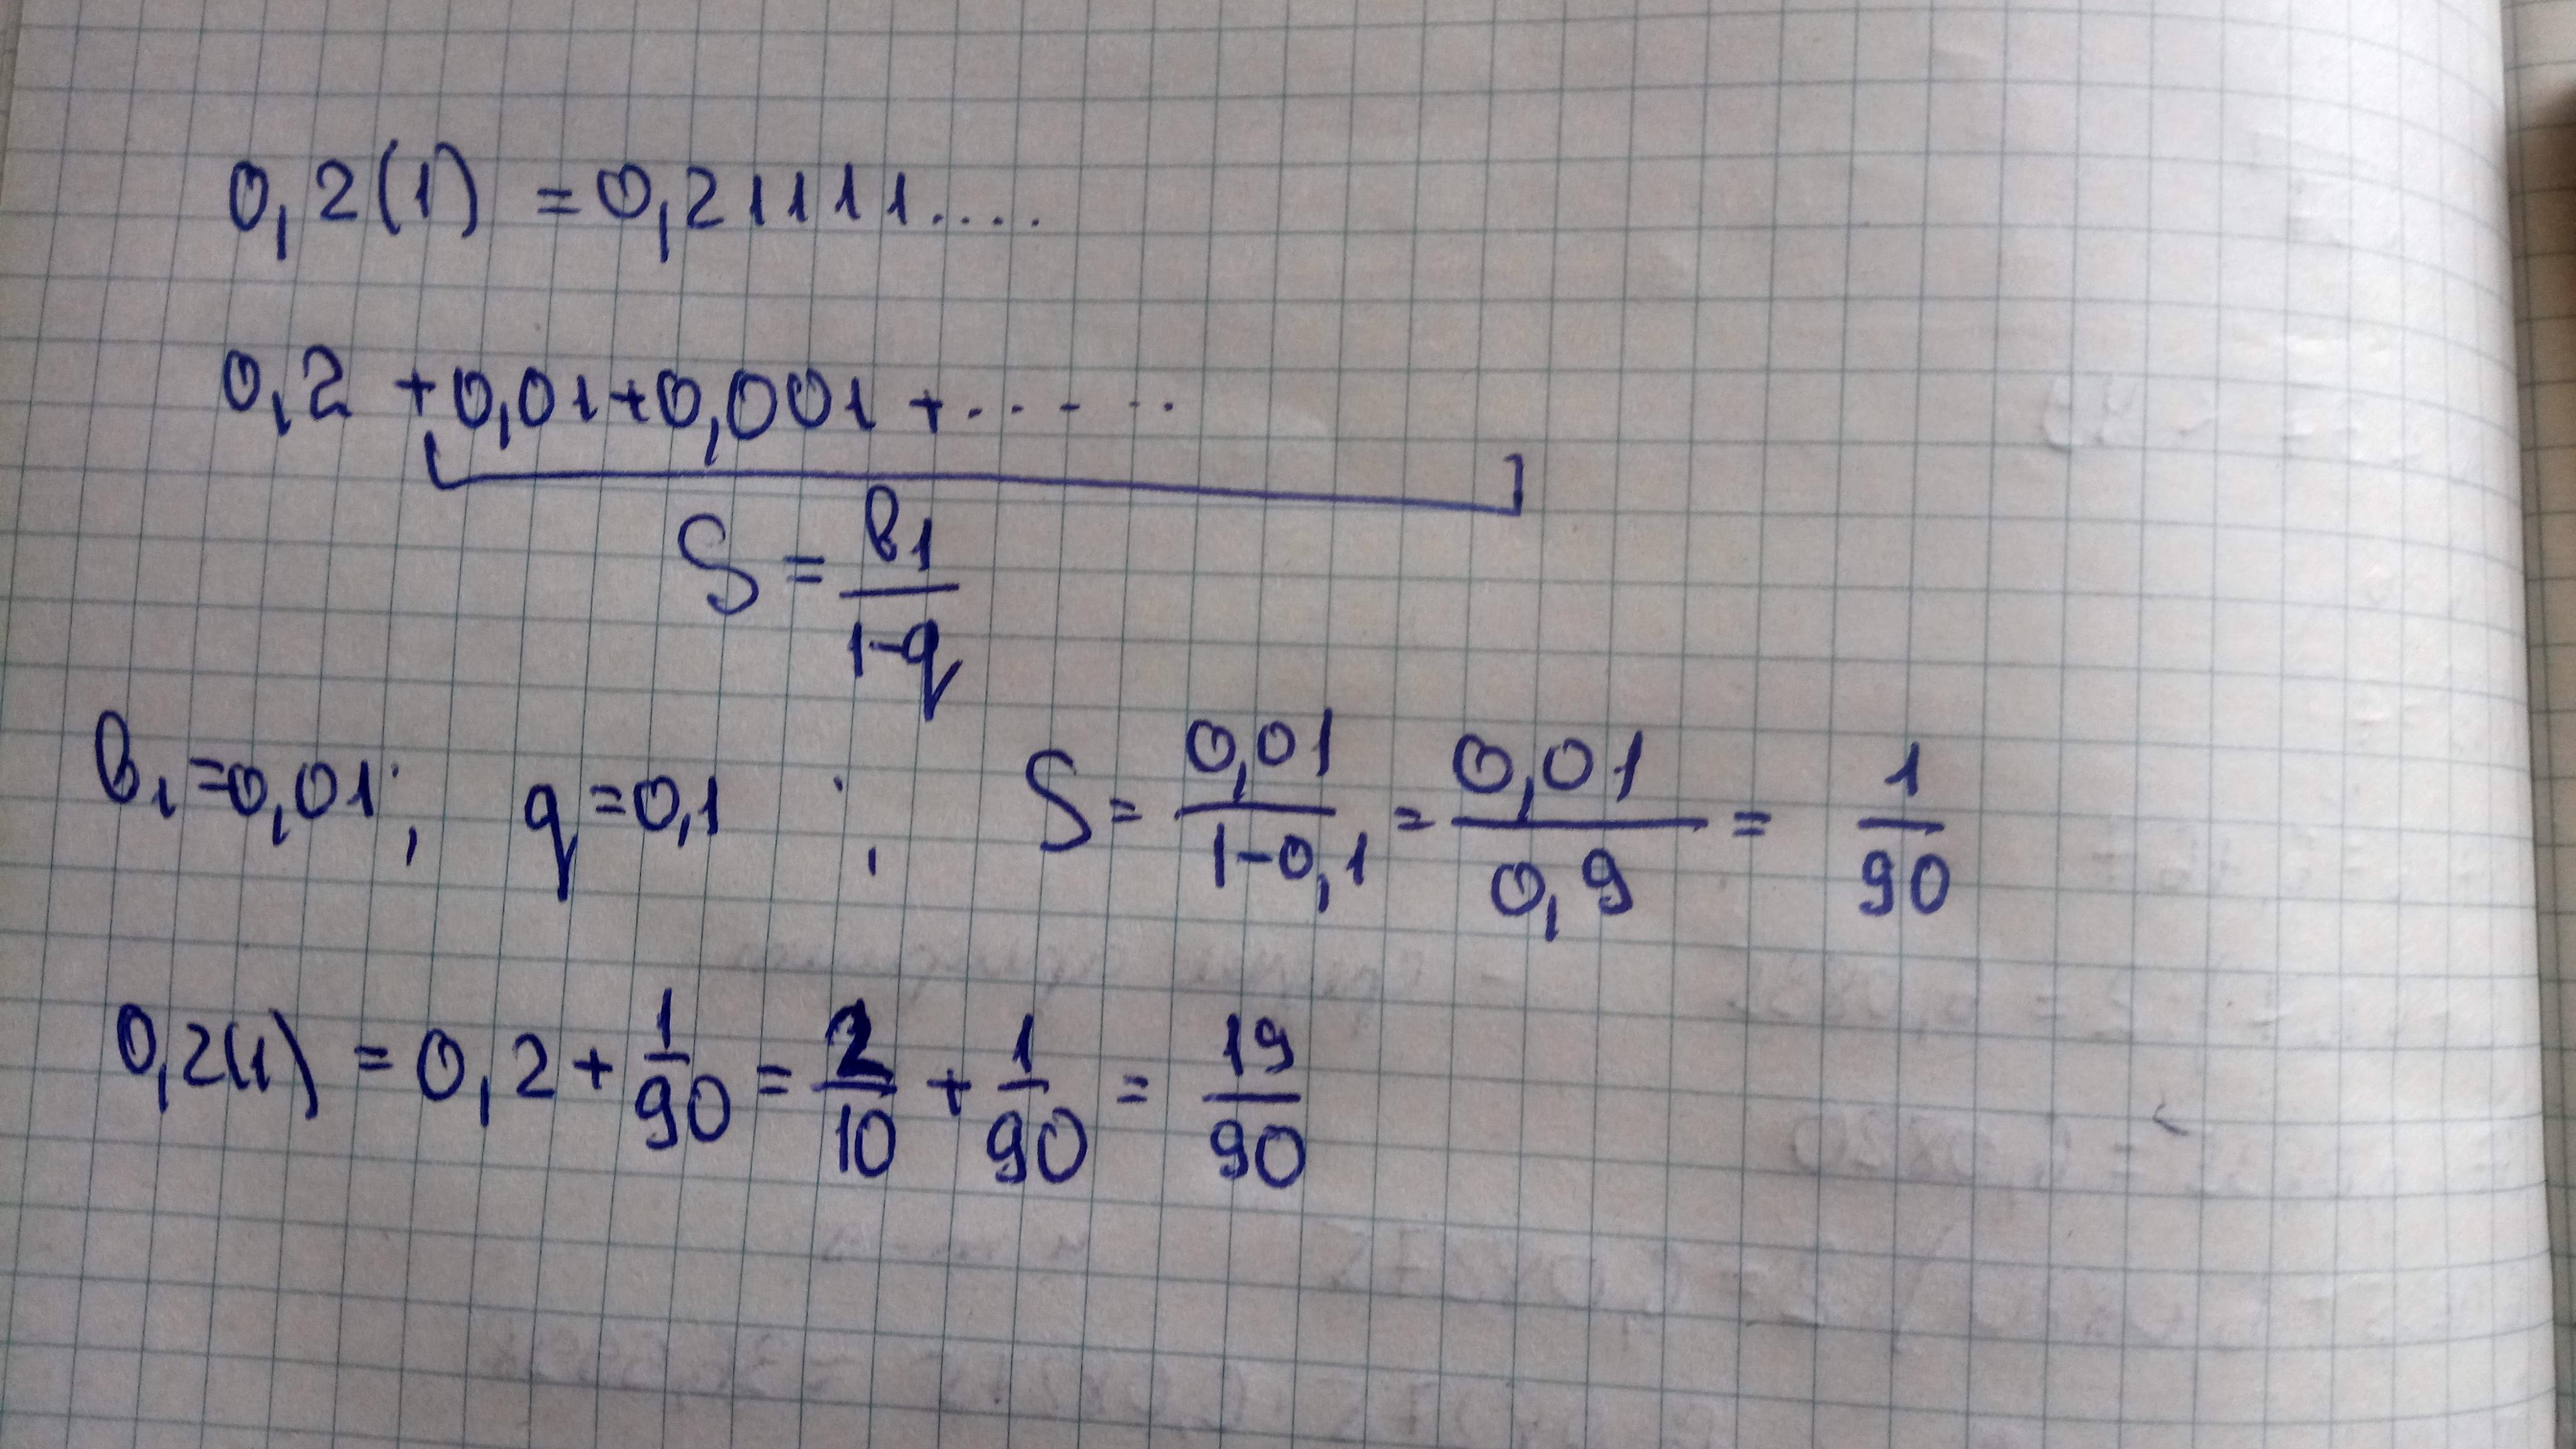 0,2(1) = 0,21111....
0,2 +0,01+0,001 +.....
S = b1/(1-q)
b1=0,01; q=0,1 ; S = 0,01/(1-0,1) = 0,01/0,9 = 1/90
0,2(1) = 0,2 + 1/90 = 2/10 + 1/90 = 19/90